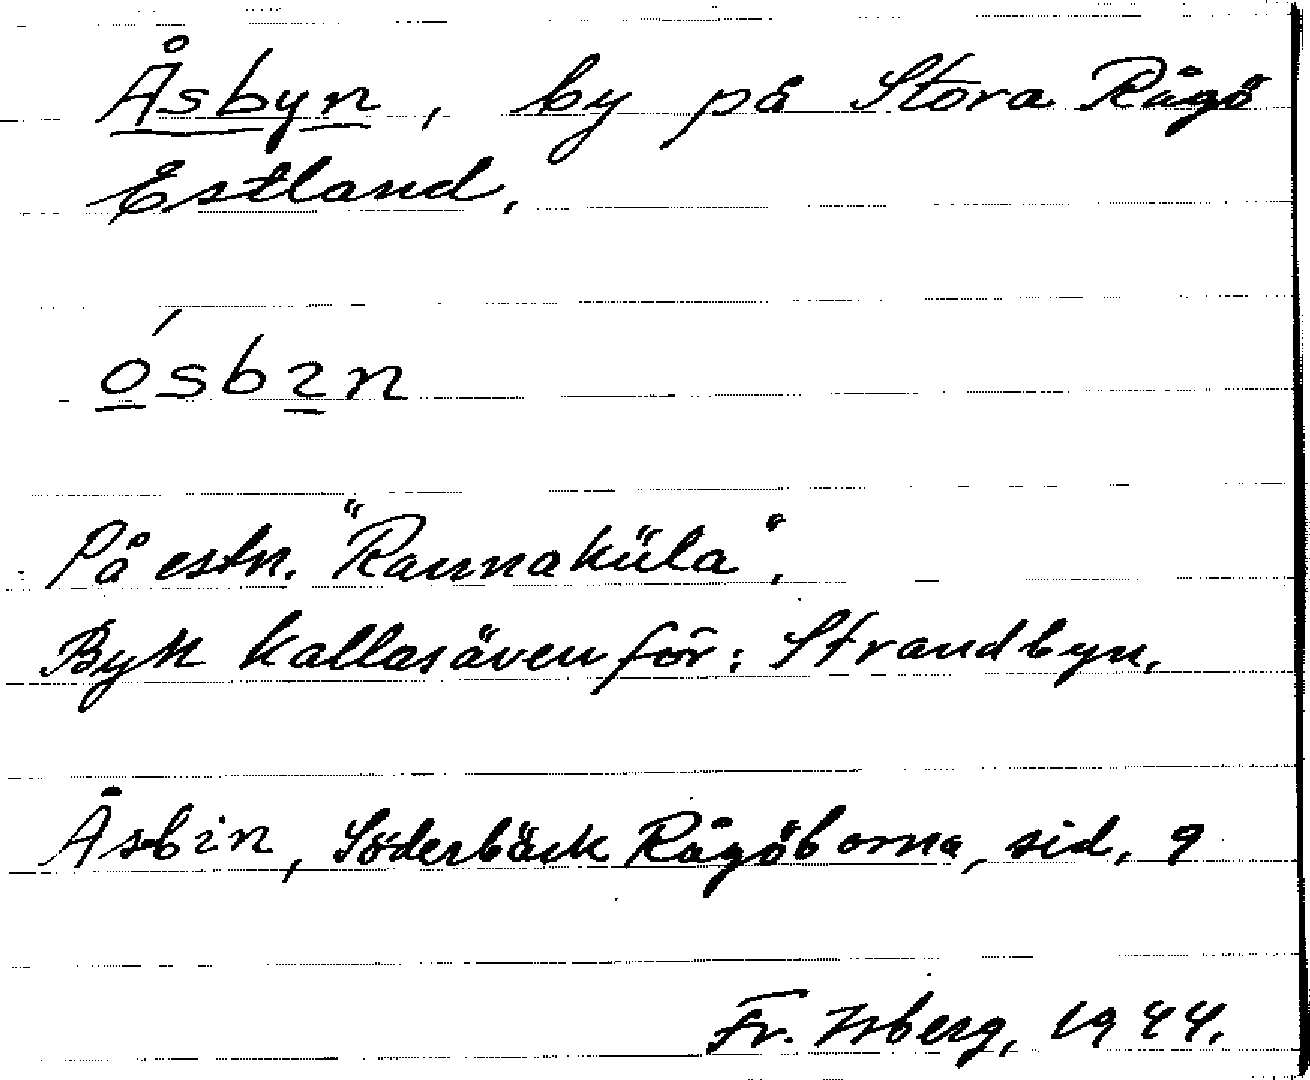 Åsbyn, by på Stora Rågö
Estland.
ósbɩn
På estn. "Rannaküla".
Byn kallas även för: Strandbyn.
Åsbin, Söderbäck Rågöborna, sid. 9
Fr. Isberg, 1944.